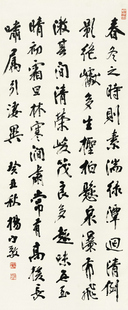 春冬之時則素湍淥潭迴清倒
影絕巘多生怪柏懸泉瀑布飛
漱其間清榮峻茂良多趣味每至
晴初霜旦林寒澗肅常有高猿長
嘯屬引淒異 癸丑秋楊守敬